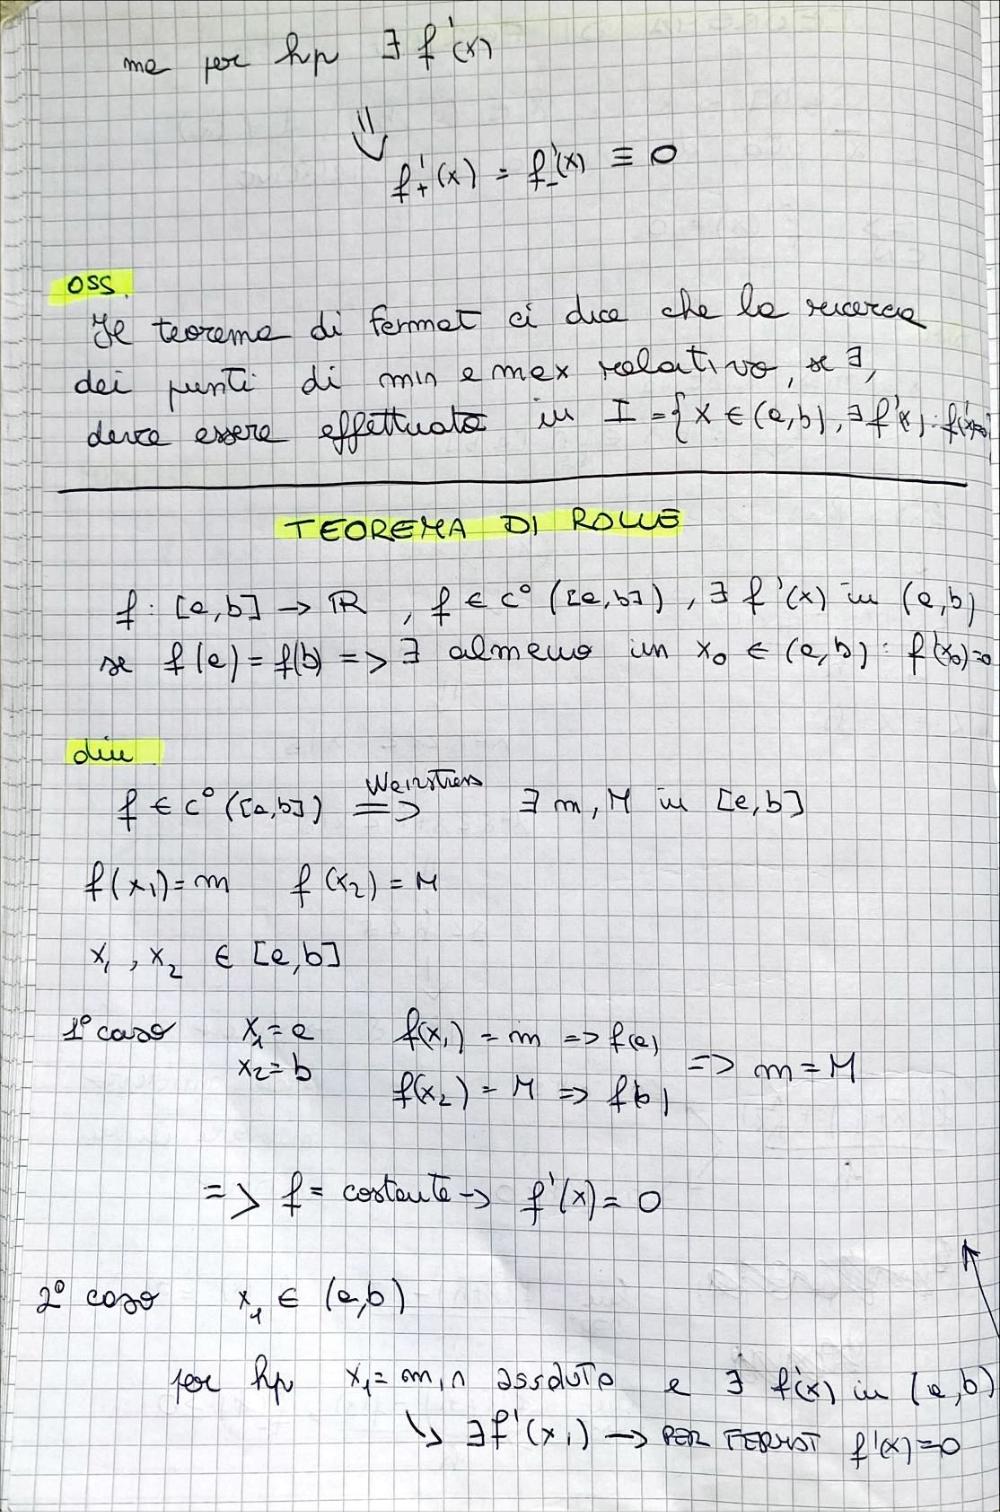 ma per hp ∃ f'(x)
⇓
f'₊(x) = f'₋(x) ≡ 0
OSS.
Il teorema di fermat ci dice che la ricerca
dei punti di min e max relativo, se ∃,
deve essere effettuata in I = {x ∈ (a,b), ∃ f'(x) : f'(x)=0}
TEOREMA DI ROLLE
f : [a,b] → ℝ , f ∈ C° ([a,b]) , ∃ f'(x) in (a,b)
se f(a) = f(b) => ∃ almeno un x₀ ∈ (a,b) : f'(x₀)=0
dim
f ∈ C° ([a,b]) Weirstrass => ∃ m, M in [a,b]
f(x₁) = m f(x₂) = M
x₁ , x₂ ∈ [a,b]
1° caso x₁ = a f(x₁) = m => f(a)
x₂ = b f(x₂) = M => f(b) => m = M
=> f = costante → f'(x) = 0
2° caso x₁ ∈ (a,b)
per hp x₁ = min assoluto e ∃ f'(x) in (a,b)
↳ ∃ f'(x₁) → PER FERMAT f'(x) = 0